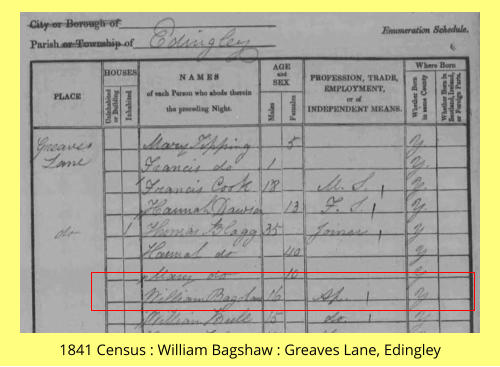 City or Borough of
Parish or Township of Edingley
Enumeration Schedule.
6.
PLACE
HOUSES
Uninhabited or Building
Inhabited
NAMES
of each Person who abode therein
the preceding Night.
AGE
and
SEX
Males
Females
PROFESSION, TRADE,
EMPLOYMENT,
or of
INDEPENDENT MEANS.
Where Born
Whether Born in same County
Whether Born in Scotland, Ireland, or Foreign Parts.
Greaves Lane
Mary Tipping 5 Y
Francis do 1 Y
Francis Cook 18 M. S. Y
Hannah Dawson 13 F. S. Y
do 1 Thomas Blagg 35 Joiner Y
Hannah do 40 Y
Mary do 10 Y
William Bagshaw 16 Ap. Y
William Bull 15 do Y
1841 Census : William Bagshaw : Greaves Lane, Edingley